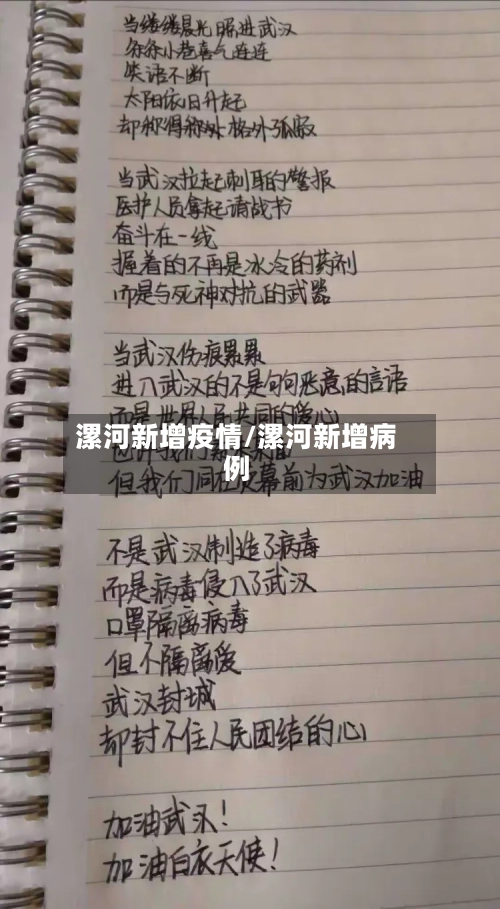 当缕缕晨光照进武汉
条条小巷喜气连连
笑语不断
太阳依旧升起
却称得称外格外孤寂
当武汉拉起刺耳的警报
医护人员拿起请战书
奋斗在一线
握着的不再是冰冷的药剂
而是与死神对抗的武器
当武汉伤痕累累
进入武汉的不是句句恶意的言语
而是世界人民共同的爱心
漯河新增疫情/漯河新增病
例
但我们同在荧幕前为武汉加油
不是武汉制造了病毒
而是病毒侵入了武汉
口罩隔离病毒
但不隔离爱
武汉封城
却封不住人民团结的心
加油武汉！
加油白衣天使！